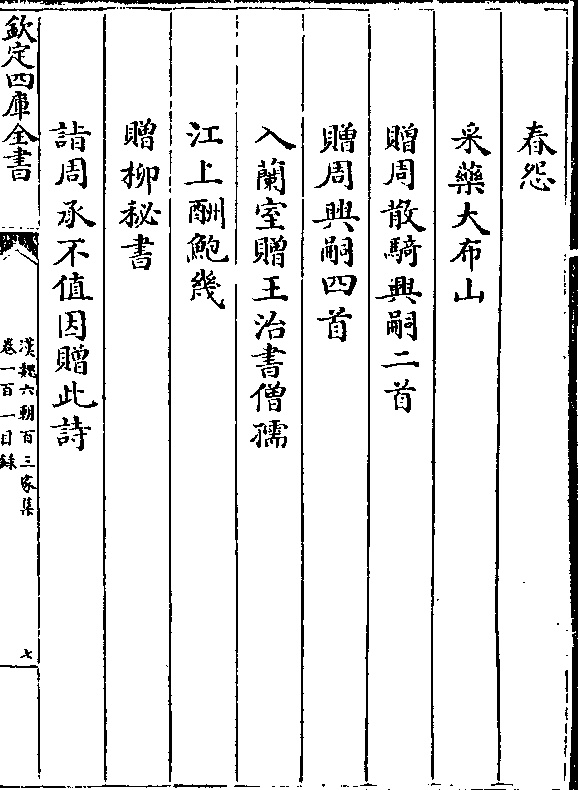 春怨
采藥大布山
贈周散騎興嗣二首
贈周興嗣四首
入蘭室贈王治書僧孺
江上酬鮑幾
贈柳秘書
詣周承不值因贈此詩
欽定四庫全書
漢魏六朝百三家集
卷一百一目錄
七